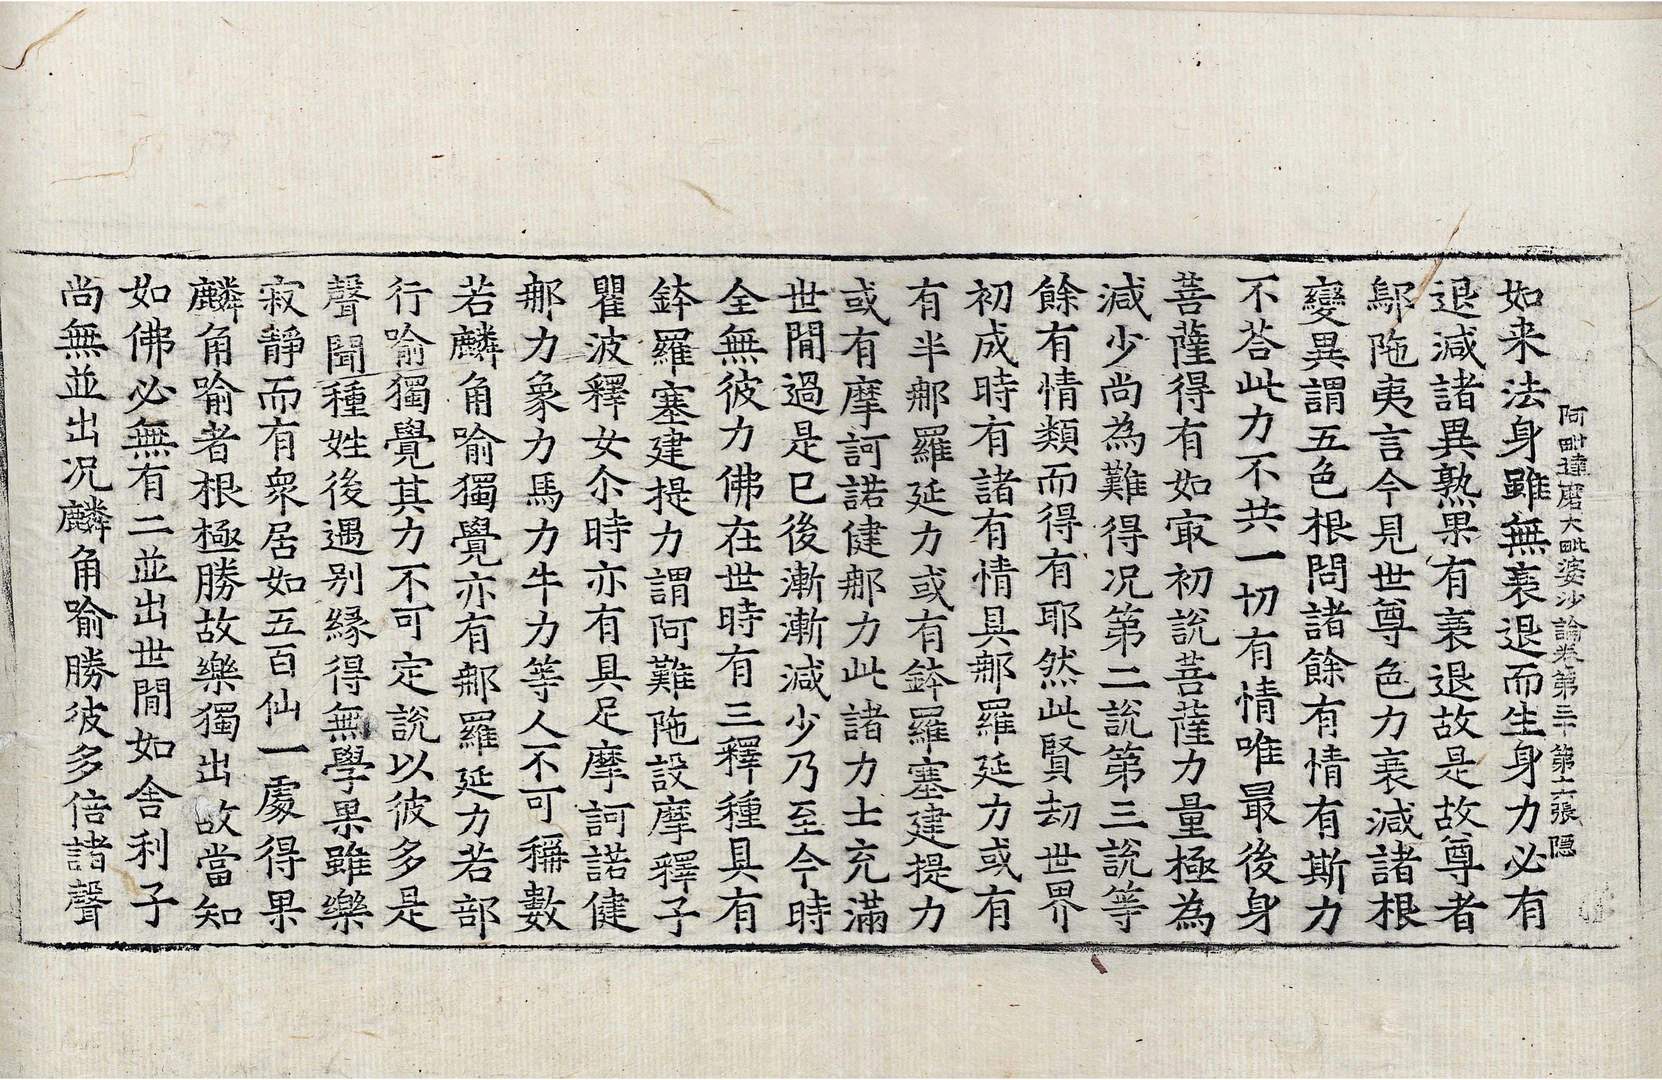 阿毗達磨大毗婆沙論卷第三十 第六張 隠
如来法身雖無衰退而生身力必有
退減諸異熟果有衰退故是故尊者
鄔陁夷言今見世尊色力衰減諸根
變異謂五色根問諸餘有情有斯力
不荅此力不共一切有情唯最後身
菩薩得有如㝡初說菩薩力量極為
減少尚為難得况第二說第三說等
餘有情類而得有耶然此賢劫世界
初成時有諸有情具那羅延力或有
有半那羅延力或有鉢羅塞建提力
或有摩訶諾健那力此諸力士充滿
世間過是已後漸漸減少乃至今時
全無彼力佛在世時有三釋種具有
鉢羅塞建提力謂阿難陁設摩釋子
瞿波釋女尒時亦有具足摩訶諾健
那力象力馬力牛力等人不可稱數
若麟角喻獨覺亦有那羅延力若部
行喻獨覺其力不可定說以彼多是
聲聞種姓後遇别緣得無學果雖樂
寂靜而有衆居如五百仙一處得果
麟角喻者根極勝故樂獨出故當知
如佛必無有二並出世間如舍利子
尚無並出况麟角喻勝彼多倍諸聲